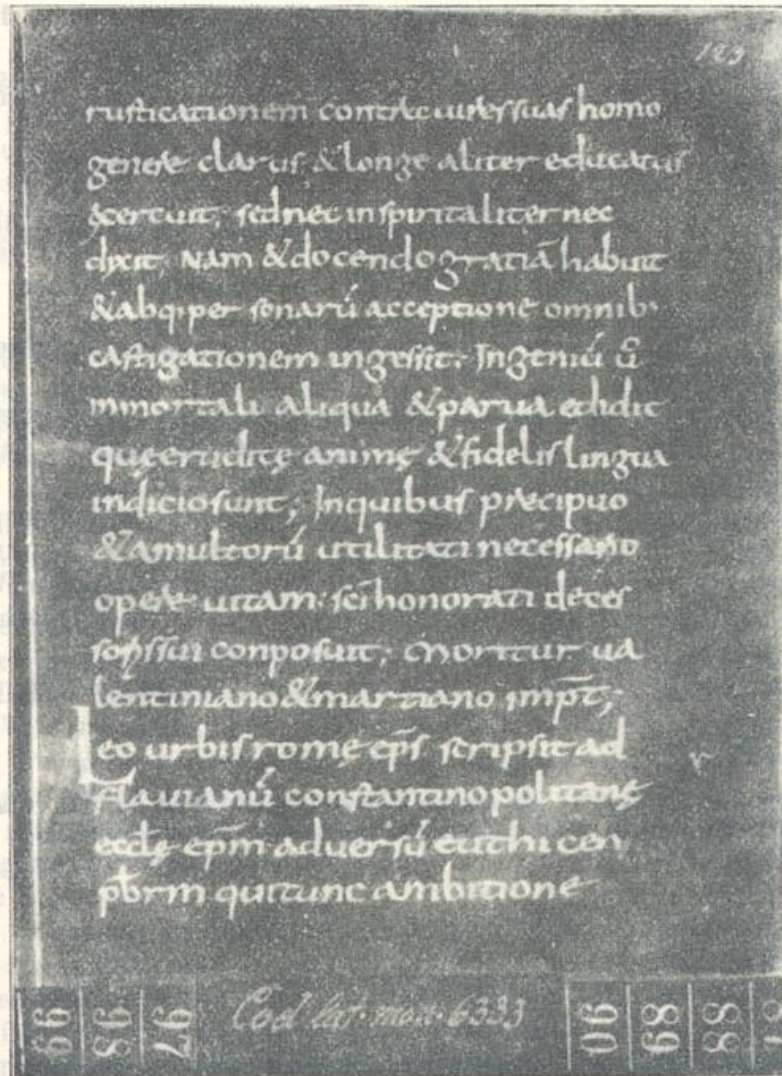 123
rusticationem contra vires suas homo
genere clarus & longe aliter educatus
&ercuit; sed nec in spiritaliter nec
dixit; Nam & docendo gratiā habuit
& absq; personarū acceptione omnib;
castigationem ingessit. Ingeniū ū
inmortali aliqua & parua edidit
quę eruditę animę & fidelis lingua
indicio sunt; In quibus praecipuo
& a multorū utilitati necessario
opere uitam sc̄i honorati deces
soris sui conposuit; Moritur ua
lentiniano & martiano imp̄t;
Leo urbis romę ep̄s scripsit ad
Flauianū constantinopolitanę
eccłę ep̄m aduersū euthicen
pb̄rm qui tunc ambitione
Cod. lat. mon. 6333
99 98 97
90 89 88 87